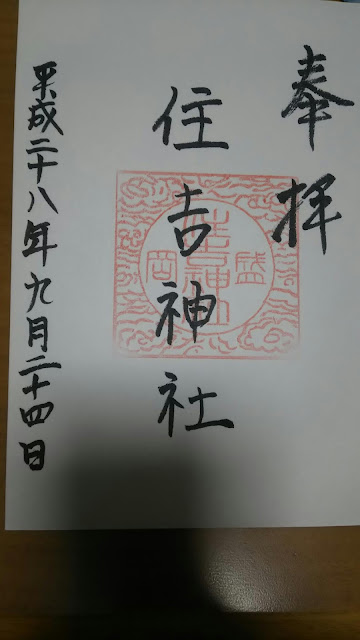 奉拝
住吉神社
盛岡
平成二十八年九月二十四日